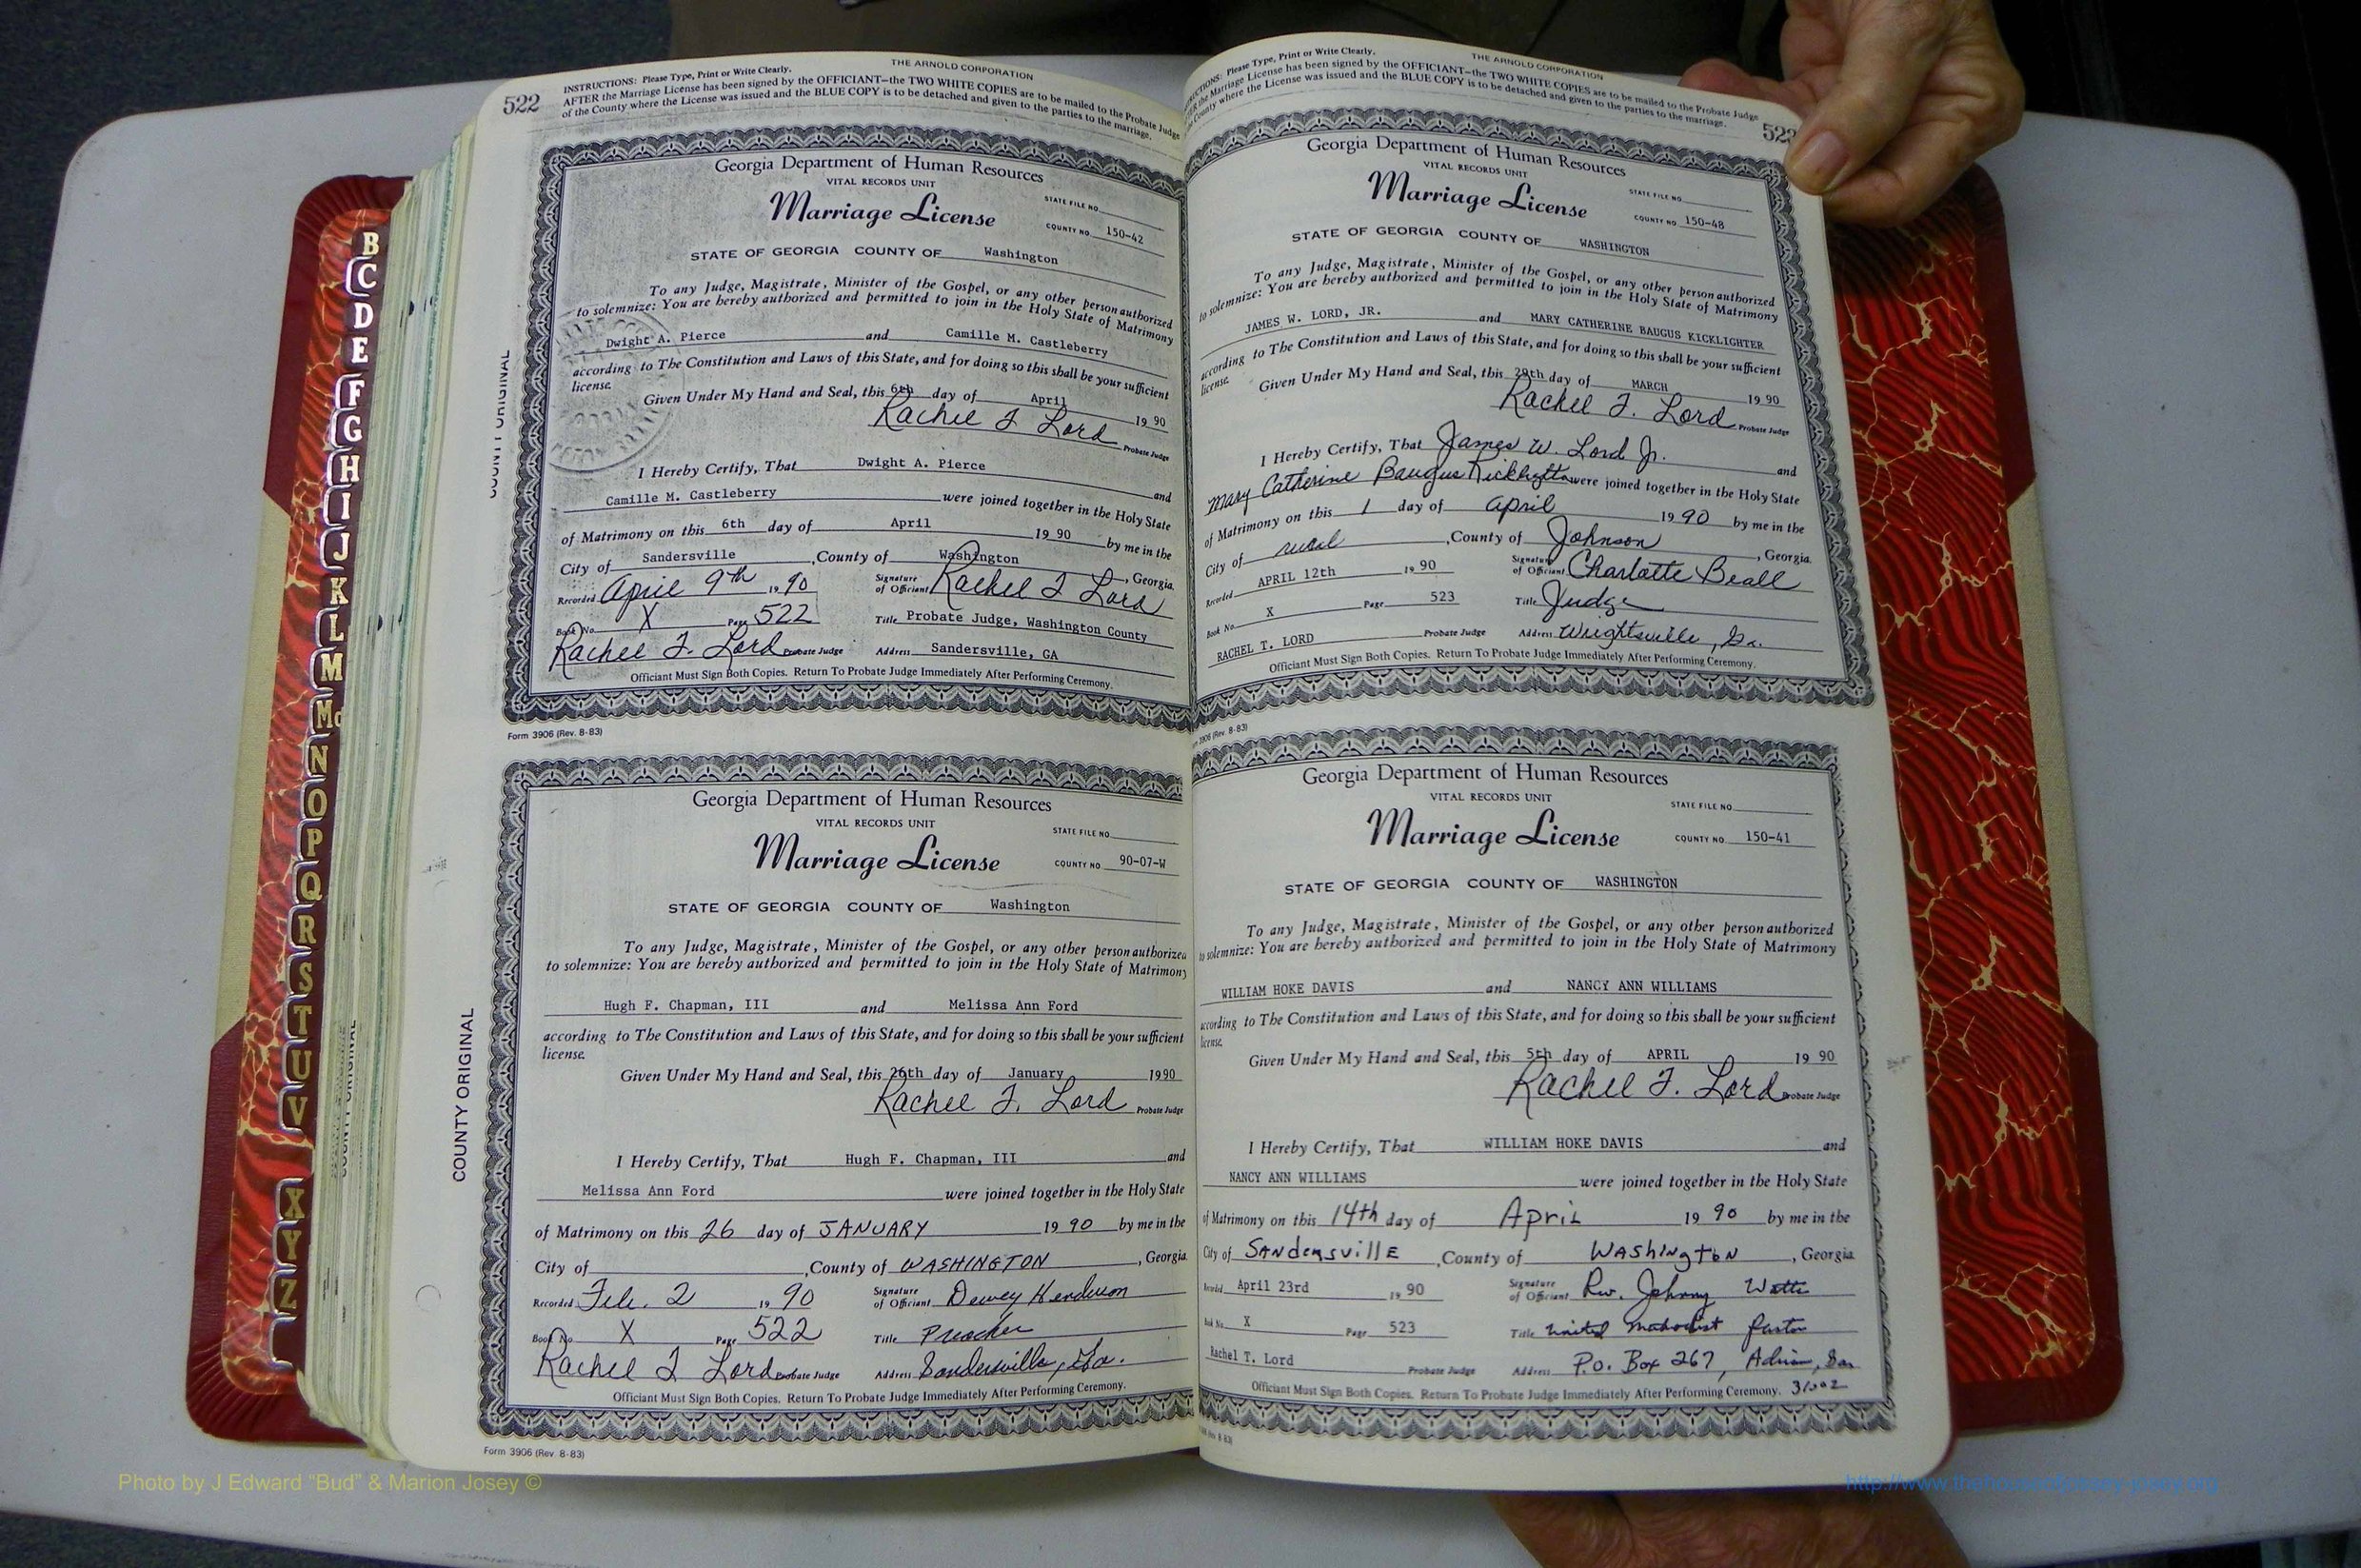 522
INSTRUCTIONS: Please Type, Print or Write Clearly.
THE ARNOLD CORPORATION
AFTER the Marriage License has been signed by the OFFICIANT—the TWO WHITE COPIES are to be mailed to the Probate Judge
of the County where the License was issued and the BLUE COPY is to be detached and given to the parties to the marriage.
COUNTY ORIGINAL
Georgia Department of Human Resources
VITAL RECORDS UNIT
Marriage License
STATE FILE NO.
COUNTY NO. 150-42
STATE OF GEORGIA COUNTY OF Washington
To any Judge, Magistrate, Minister of the Gospel, or any other person authorized
to solemnize: You are hereby authorized and permitted to join in the Holy State of Matrimony
Dwight A. Pierce and Camille M. Castleberry
according to The Constitution and Laws of this State, and for doing so this shall be your sufficient
license.
Given Under My Hand and Seal, this 6th day of April 19 90
Rachel T Lord Probate Judge
I Hereby Certify, That Dwight A. Pierce and
Camille M. Castleberry were joined together in the Holy State
of Matrimony on this 6th day of April 19 90 by me in the
City of Sandersville, County of Washington, Georgia.
Recorded April 9th 19 90 Signature of Officiant Rachel T Lord
Book No. X Page 522 Title Probate Judge, Washington County
Rachel T. Lord Probate Judge Address Sandersville, GA
Officiant Must Sign Both Copies. Return To Probate Judge Immediately After Performing Ceremony.
Form 3906 (Rev. 8-83)
COUNTY ORIGINAL
Georgia Department of Human Resources
VITAL RECORDS UNIT
Marriage License
STATE FILE NO.
COUNTY NO. 90-07-W
STATE OF GEORGIA COUNTY OF Washington
To any Judge, Magistrate, Minister of the Gospel, or any other person authorized
to solemnize: You are hereby authorized and permitted to join in the Holy State of Matrimony
Hugh F. Chapman, III and Melissa Ann Ford
according to The Constitution and Laws of this State, and for doing so this shall be your sufficient
license.
Given Under My Hand and Seal, this 26th day of January 1990
Rachel T. Lord Probate Judge
I Hereby Certify, That Hugh F. Chapman, III and
Melissa Ann Ford were joined together in the Holy State
of Matrimony on this 26 day of JANUARY 19 90 by me in the
City of , County of WASHINGTON, Georgia.
Recorded Feb. 2 19 90 Signature of Officiant Dewey Henderson
Book No. X Page 522 Title Preacher
Rachel T Lord Probate Judge Address Sandersville, Ga.
Officiant Must Sign Both Copies. Return To Probate Judge Immediately After Performing Ceremony.
Form 3906 (Rev. 8-83)
Please Type, Print or Write Clearly.
THE ARNOLD CORPORATION
the Marriage License has been signed by the OFFICIANT—the TWO WHITE COPIES are to be mailed to the Probate Judge
County where the License was issued and the BLUE COPY is to be detached and given to the parties to the marriage.
Georgia Department of Human Resources
VITAL RECORDS UNIT
Marriage License
STATE FILE NO.
COUNTY NO. 150-48
STATE OF GEORGIA COUNTY OF WASHINGTON
To any Judge, Magistrate, Minister of the Gospel, or any other person authorized
to solemnize: You are hereby authorized and permitted to join in the Holy State of Matrimony
JAMES W. LORD, JR. and MARY CATHERINE BAUGUS KICKLIGHTER
according to The Constitution and Laws of this State, and for doing so this shall be your sufficient
license.
Given Under My Hand and Seal, this 29th day of MARCH 19 90
Rachel T. Lord Probate Judge
I Hereby Certify, That James W. Lord Jr. and
Mary Catherine Baugus Kicklighter were joined together in the Holy State
of Matrimony on this 1 day of April 19 90 by me in the
City of rural, County of Johnson, Georgia.
Recorded APRIL 12th 19 90 Signature of Officiant Charlotte Beall
Book No. X Page 523 Title Judge
RACHEL T. LORD Probate Judge Address Wrightsville, Ga.
Officiant Must Sign Both Copies. Return To Probate Judge Immediately After Performing Ceremony.
3906 (Rev. 8-83)
Georgia Department of Human Resources
VITAL RECORDS UNIT
Marriage License
STATE FILE NO.
COUNTY NO. 150-41
STATE OF GEORGIA COUNTY OF WASHINGTON
To any Judge, Magistrate, Minister of the Gospel, or any other person authorized
to solemnize: You are hereby authorized and permitted to join in the Holy State of Matrimony
WILLIAM HOKE DAVIS and NANCY ANN WILLIAMS
according to The Constitution and Laws of this State, and for doing so this shall be your sufficient
license.
Given Under My Hand and Seal, this 5th day of APRIL 19 90
Rachel T. Lord Probate Judge
I Hereby Certify, That WILLIAM HOKE DAVIS and
NANCY ANN WILLIAMS were joined together in the Holy State
of Matrimony on this 14th day of April 19 90 by me in the
City of Sandersville, County of Washington, Georgia.
April 23rd 19 90 Signature of Officiant Rev. Johnny Watts
Book No. X Page 523 Title United Methodist Pastor
Rachel T. Lord Probate Judge Address P.O. Box 267, Adrian, Ga
Officiant Must Sign Both Copies. Return To Probate Judge Immediately After Performing Ceremony. 31002
B
C
D
E
F
G
H
I
J
K
L
M
Mc
N
O
P
Q
R
S
T
U
V
X
Y
Z
Photo by J Edward “Bud” & Marion Josey ©
http://www.thehouseofjosey-josey.org